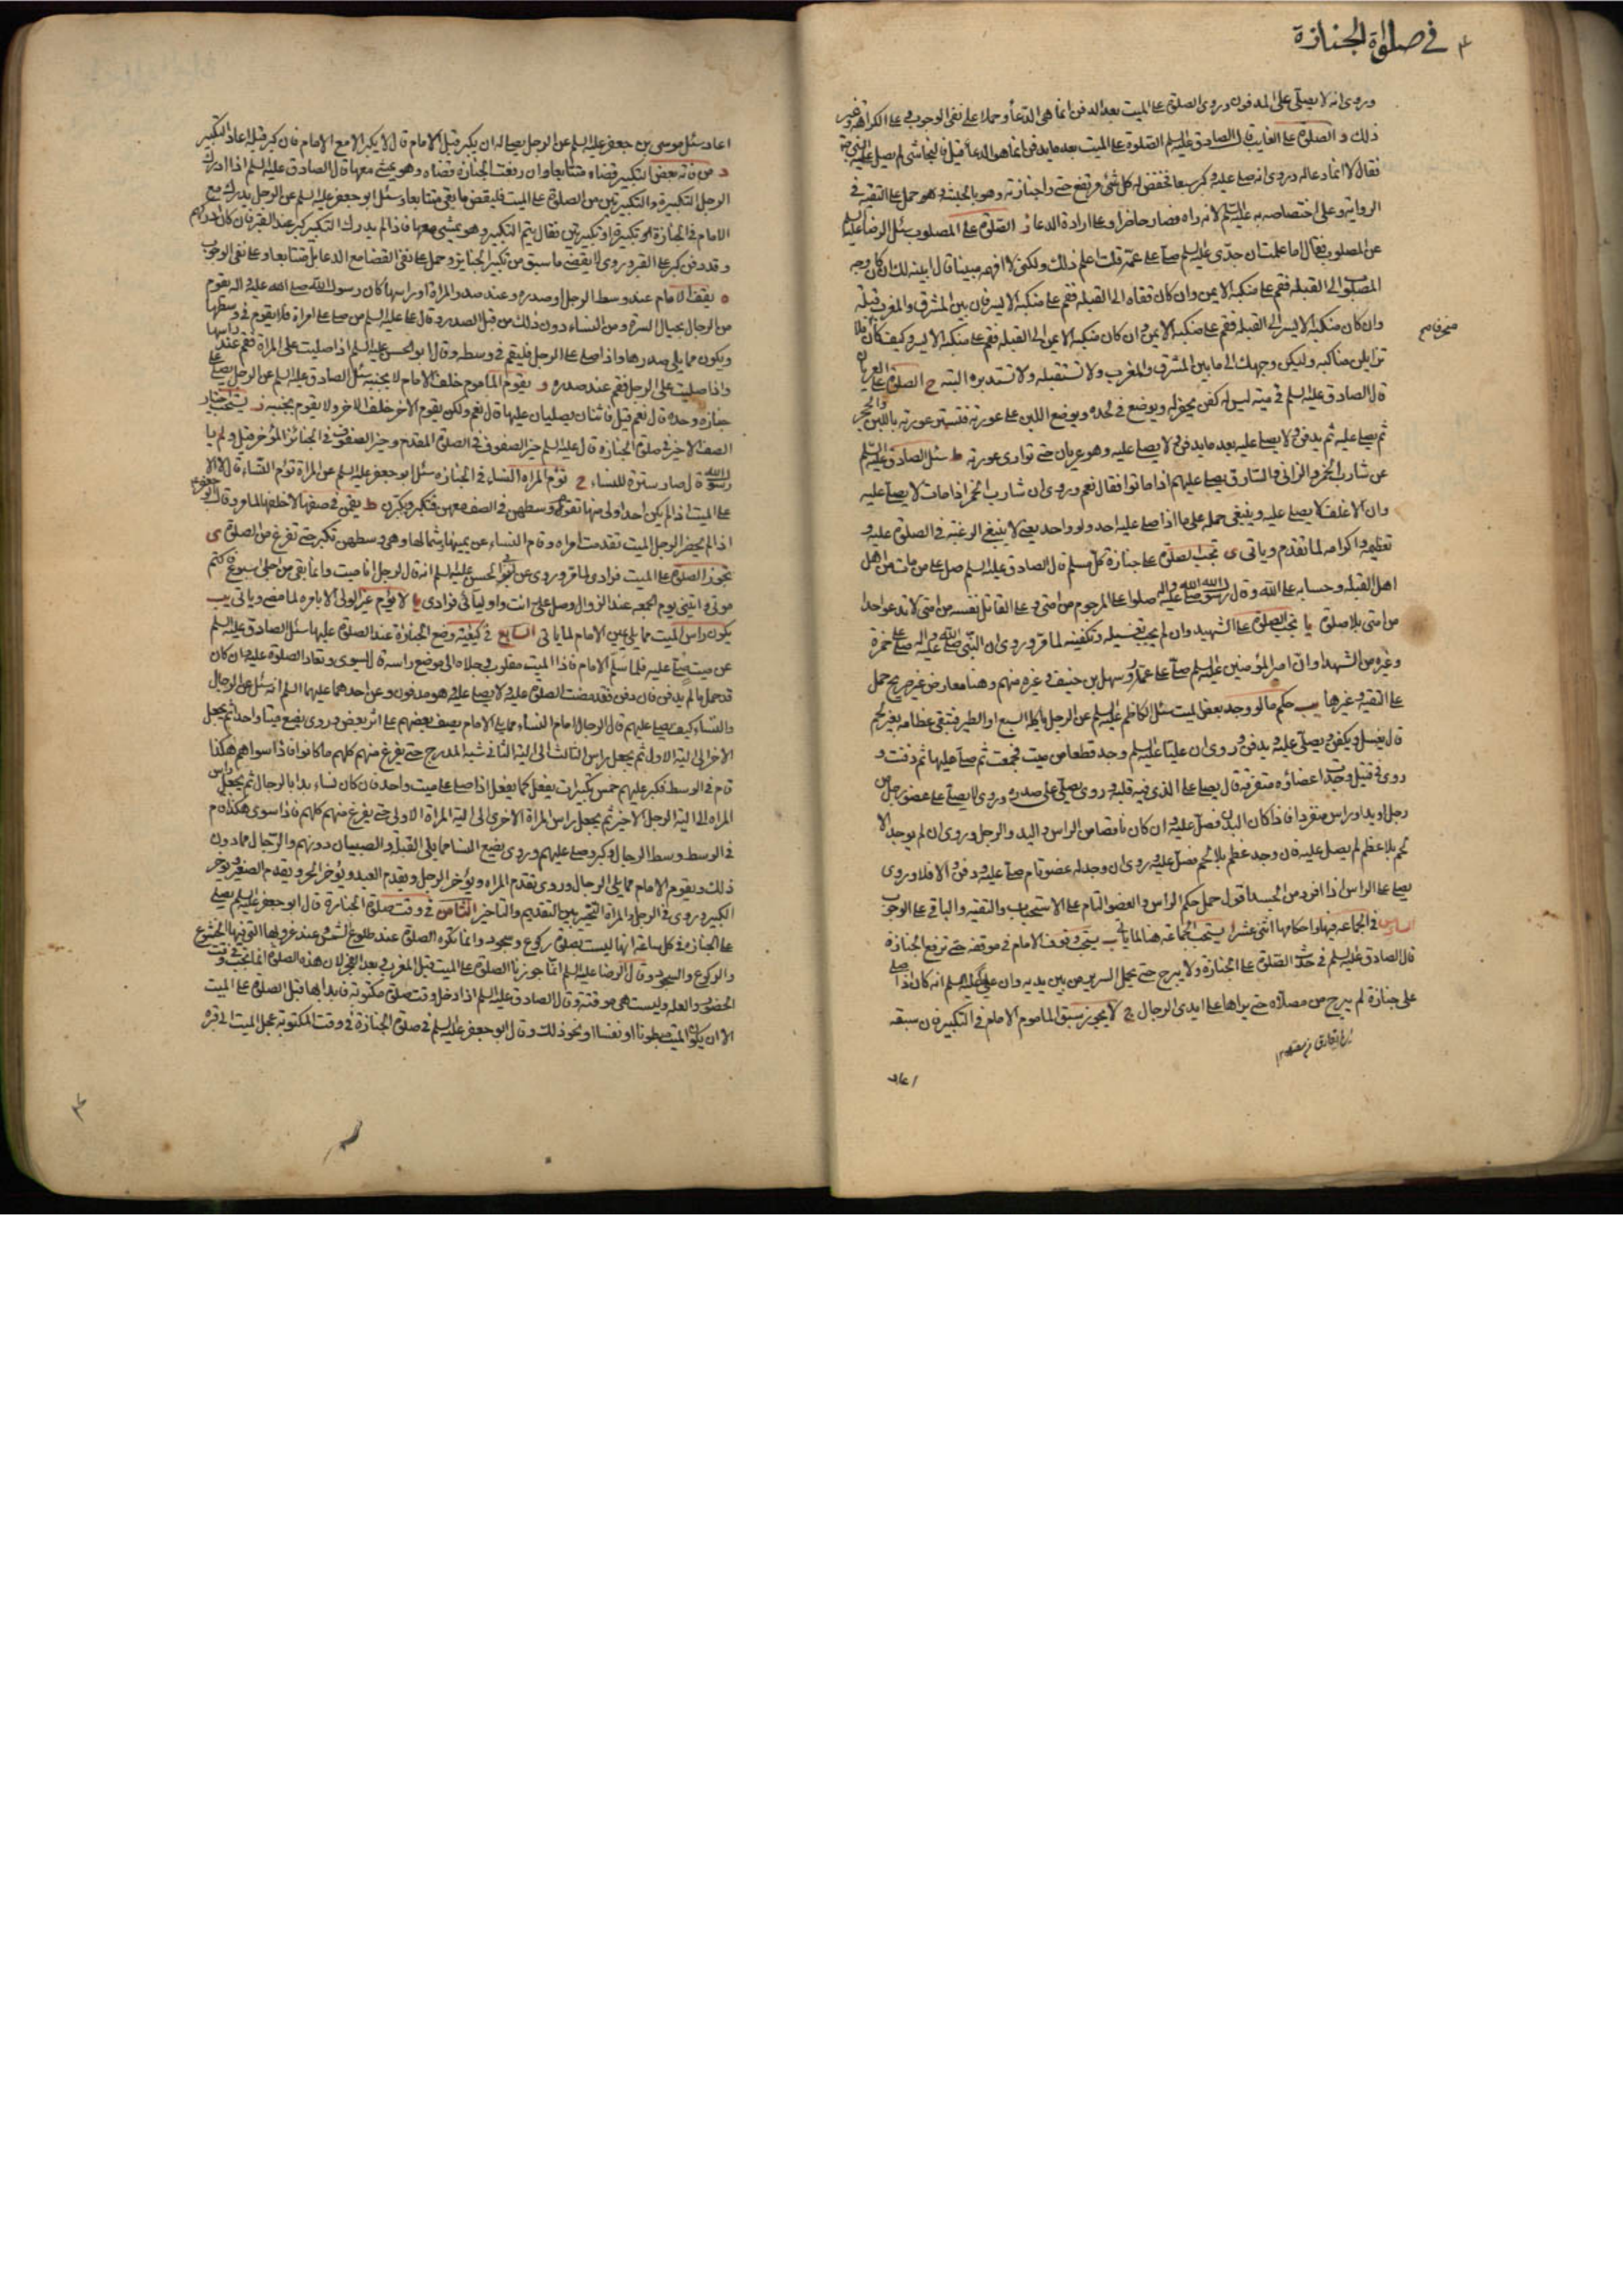 في صلوة الجنازة
وروى انه لا يصلى على المدفون وروى الصلوة على الميت بعد الدفن انما هي الدعا وحملا على نفي الوجوب وعلى الكراهة وغير
ذلك و الصلوة على الغايب قال الصادق عليه السلم الصلوة على الميت بعد ما يدفن انما هو الدعا قيل فالنجاشي لم يصل عليه النبي ص
فقال لا انما دعا له وروى انه صلى عليه وكبر سبعا فخفض له كل شئ مرتفع حتى راى جنازته وهو بالحبشة وهو حمل على التقية في
الرواية وعلى اختصاصه به عليه السلم لانه راه فصار حاضرا وعلى ارادة الدعا ز الصلوة على المصلوب سئل الرضا عليه السلم
عن المصلوب فقال اما علمت ان جدي عليه السلم صلى على عمه قلت اعلم ذلك ولكني لا افهمه مبينا قال ابينه لك ان كان وجه
المصلوب الى القبلة فقم على منكبه الايمن وان كان قفاه الى القبلة فقم على منكبه الايسر فان بين المشرق والمغرب قبلة
وان كان منكبه الايسر الى القبلة فقم على منكبه الايمن وان كان منكبه الايمن الى القبلة فقم على منكبه الايسر وكيف كان فلا
تزايلن مناكبه وليكن وجهك الى ما بين المشرق والمغرب ولا تستقبله ولا تستدبره البتة ح الصلوة على العريان
قال الصادق عليه السلم في ميت ليس له كفن يحفر له ويوضع في لحده ويوضع اللبن على عورته فتستر عورته باللبن والحجر
ثم يصلى عليه ثم يدفن ولا يصلى عليه بعد ما يدفن ولا يصلى عليه وهو عريان حتى توارى عورته ط سئل الصادق عليه السلم
عن شارب الخمر والزاني والسارق يصلى عليهم اذا ماتوا فقال نعم وروى ان شارب الخمر اذا مات لا يصلى عليه
وان الاغلف لا يصلى عليه وينبغي حمله على ما اذا صلى عليه احد ولو واحد يعني لا ينبغي الرغبة في الصلوة عليه و
تعظيمه واكرامه لما تقدم وياتي ى تجب الصلوة على جنازة كل مسلم قال الصادق عليه السلم صل على من مات من اهل
اهل القبلة وحسابه على الله وقال رسول الله صلى الله عليه واله صلوا على المرجوم من امتي وعلى القاتل نفسه من امتي لا تدعوا احدا
من امتي بلا صلوة يا تجب الصلوة على الشهيد وان لم يجب تغسيله وتكفينه لما مر وروى ان النبي صلى الله عليه واله صلى على حمزة
وغيره من الشهدا وان امير المؤمنين عليه السلم صلى على عمار وسهل بن حنيف وغيره منهم وهنا معارض غير صريح حمل
على التقية وغيرها يب حكم ما لو وجد بعض الميت سئل الكاظم عليه السلم عن الرجل ياكله السبع او الطير فتبقى عظامه بغير لحم
قال يغسل ويكفن ويصلى عليه ويدفن وروى ان عليا عليه السلم وجد قطعا من ميت فجمعت ثم صلى عليها ثم دفنت و
روى في قتيل وجد اعضاؤه متفرقة قال يصلى على الذي فيه قلبه وروى يصلى على صدره وروى لا يصلى على عضو رجل من
رجل او يد او راس منفردا فاذا كان البدن فصل عليه وان كان ناقصا من الراس واليد والرجل وروى ان لم يوجد الا
لحم بلا عظم لم يصل عليه فان وجد عظم بلا لحم فصل عليه وروى ان وجد له عضو تام صلى عليه ودفن والا فلا وروى
يصلى على الراس اذا افرد من الجسد اقول حمل حكم الراس والعضو التام على الاستحباب والتقية والباقي على الوجوب
السادس في الجماعة فيها واحكامها اثنى عشر ا يستحب الجماعة هنا لما ياتي ب يستحب وقوف الامام في موقفه حتى ترفع الجنازة
قال الصادق عليه السلم في حد الصلوة على الجنازة ولا يبرح حتى يحمل السرير من بين يديه وان علي عليه السلم انه كان اذا صلى
على جنازة لم يبرح من مصلاه حتى يراها على ايدي الرجال ج لا يجوز سبق الماموم الامام في التكبير فان سبقه
اعاد
اعاد سئل موسى بن جعفر عليه السلم عن الرجل يصلي اله ان يكبر قبل الامام قال لا يكبر الا مع الامام فان كبر قبله اعاد التكبير
د من فاته بعض التكبير قضاه متتابعا وان رفعت الجنازة قضاه وهو يمشي معها قال الصادق عليه السلم اذا ادرك
الرجل التكبيرة والتكبيرتين من الصلوة على الميت فليقض ما بقي متتابعا وسئل ابو جعفر عليه السلم عن الرجل يدرك مع
الامام في الجنازة تكبيرة او تكبيرتين فقال يتم التكبير وهو يمشي معها فاذا لم يدرك التكبير كبر عند القبر فان كان ادركهم
وقد دفن كبر على القبر وروى لا يقضي ما سبق من تكبير الجنايز وحمل على نفي القضا مع الدعا بل متتابعا وعلى نفي الوجوب
ه يقف الامام عند وسط الرجل او صدره وعند صدر المراة او راسها كان رسول الله صلى الله عليه واله يقوم
من الرجال بحيال السرة ومن النساء دون ذلك من قبل الصدر وقال على عليه السلم من صلى على امراة فلا يقوم في وسطها
ويكون مما يلي صدرها واذا صلى على الرجل فليقم في وسطه وقال ابو الحسن عليه السلم اذا صليت على المراة فقم عند راسها
واذا صليت على الرجل فقم عند صدره و يقوم الماموم خلف الامام لا بجنبه سئل الصادق عليه السلم عن الرجل يصلي على
جنازة وحده قال نعم قيل فاثنان يصليان عليها قال نعم ولكن يقوم الاخر خلف الاخر ولا يقوم بجنبه ز يستحب اختيار
الصف الاخير في صلوة الجنازة قال عليه السلم خير الصفوف في الصلوة المقدم وخير الصفوف في الجنائز المؤخر قيل ولم يا
رسول الله قال صار سترة للنساء ح تؤم المراة النساء في الجنازة سئل ابو جعفر عليه السلم عن المراة تؤم النساء قال لا الا
على الميت اذا لم يكن احد اولى منها تقوم وسطهن في الصف معهن فتكبر ويكبرن ط يقمن في صفها لا خلفها لما مر وقال ابو جعفر ع
اذا لم يحضر الرجل الميت تقدمت امراة وقام النساء عن يمينها وشمالها وهي وسطهن تكبر حتى تفرغ من الصلوة ى
تجوز الصلوة على الميت فرادى لما مر وروى عن ابو الحسن عليه السلم انه قال لرجل انا ميت وانما بقي من اجلي اسبوع فاكتم
موتي وايتني يوم الجمعة عند الزوال وصل علي انت واوليائي فرادى يا لا يؤم غير الولي الا بامره لما مضى وياتي يب
يكون راس الميت مما يلي يمين الامام لما ياتي السابع في كيفية وضع الجنازة عند الصلوة عليها سئل الصادق عليه السلم
عن ميت صلى عليه فلما سلم الامام فاذا الميت مقلوب رجلاه الى موضع راسه قال يسوى وتعاد الصلوة عليه وان كان
قد حمل ما لم يدفن فان دفن فقد مضت الصلوة عليه ولا يصلى عليه وهو مدفون وعن احدهما عليهما السلم انه سئل عن الرجال
والنساء كيف يصلى عليهم قال الرجال امام النساء مما يلي الامام يصف بعضهم على اثر بعض وروى يضع ميتا واحدا ثم يجعل
الاخر الى الية الاول ثم يجعل راس الثالث الى الية الثاني شبه المدرج حتى يفرغ منهم كلهم ما كانوا فاذا سواهم هكذا
قام في الوسط فكبر عليهم خمس تكبيرات يفعل كما يفعل اذا صلى على ميت واحد فان كان نساء بدا بالرجال ثم يجعل راس
المراة الى الية الرجل الاخير ثم يجعل راس المراة الاخرى الى الية المراة الاولى حتى يفرغ منهم كلهم فاذا سوى هكذا قام
في الوسط وسط الرجال وكبر وصلى عليهم وروى يضع النسا مما يلي القبلة والصبيان دونهم والرجال مما دون
ذلك ويقوم الامام مما يلي الرجال وروى تقدم المراة ويؤخر الرجل ويقدم العبد ويؤخر الحر ويقدم الصغير ويؤخر
الكبير وروى في الرجل والمراة التخيير بين التقديم والتاخير الثامن في وقت صلوة الجنازة قال ابو جعفر عليه السلم يصلى
على الجنازة في كل ساعة انها ليست بصلوة ركوع وسجود وانما تكره الصلوة عند طلوع الشمس وعند غروبها التي فيها الخشوع
والركوع والسجود وقال الرضا عليه السلم انما جوزنا الصلوة على الميت قبل المغرب وبعد الفجر لان هذه الصلوة انما تجب في وقت
الحضور والعلة وليست هي موقتة وقال الصادق عليه السلم اذا دخل وقت صلوة مكتوبة فابدا بها قبل الصلوة على الميت
الا ان يكون الميت مبطونا او نفسا او نحو ذلك وقال ابو جعفر عليه السلم في صلوة الجنازة في وقت المكتوبة عجل الميت الى قبره